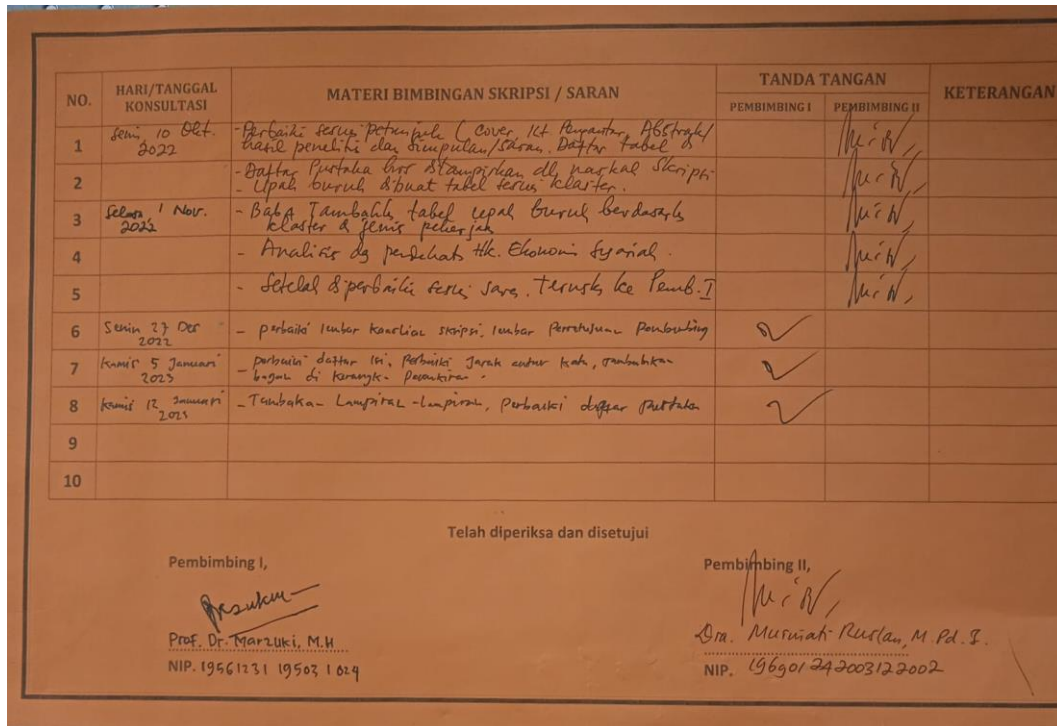 NO.
HARI/TANGGAL
KONSULTASI
MATERI BIMBINGAN SKRIPSI / SARAN
TANDA TANGAN
PEMBIMBING I
PEMBIMBING II
KETERANGAN
1
10 Okt.
2022
- Perbaiki sesuai petunjuk ( cover, Kt Pengantar, Abstrak/
hasil penelitian dan simpulan/saran. Daftar tabel
2
- Daftar Pustaka dilampirkan naskah Skripsi
- Upah buruh dibuat tabel sesuai klaster.
3
Selasa, 1 Nov.
2022
- tabel upah buruh
klaster & jenis
4
- Analisis Hk. Ekonomi Syariah.
5
- Setelah diperbaiki ke Pemb. I
6
Senin 27 Des
2022
- perbaiki lembar skripsi, lembar
7
Kamis 5 Januari
2023
- perbaiki daftar isi, Perbaiki Jarak antar kata, tambahkan
bagan di
8
Kamis 12 Januari
2023
- Lampiran-lampiran, Perbaiki daftar pustaka
9
10
Telah diperiksa dan disetujui
Pembimbing I,
Prof. Dr. Marzuki, M.H
NIP. 19561231 19503 1 024
Pembimbing II,
Dra. Murniati Ruslan, M.Pd.I.
NIP. 196901242003122002